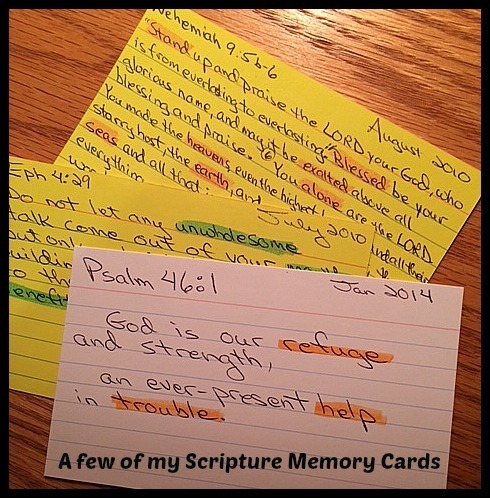 Nehemiah 9:5b-6
August 2010
"Stand up and praise the LORD your God, who
is from everlasting to everlasting." "Blessed be your
glorious name, and may it be exalted above all
blessing and praise. ⑥ You alone are the LORD
You made the heavens, even the highest
starry host, the earth, and
seas and all that
Eph 4:29
July 2010
Do not let any unwholesome
talk come out of your
but onl
uilding
to th
enefit
Psalm 46:1
Jan 2014
God is our refuge
and strength,
an ever-present help
in trouble.
A few of my Scripture Memory Cards